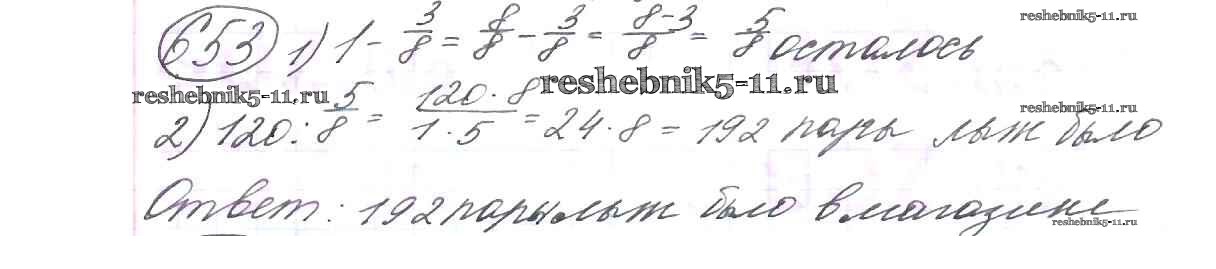 653 1) 1 - 3/8 = 8/8 - 3/8 = 8-3/8 = 5/8 осталось
reshebnik5-11.ru
reshebnik5-11.ru
reshebnik5-11.ru
2) 120 : 5/8 = 120 · 8/1 · 5 = 24 · 8 = 192 пары лыж было
reshebnik5-11.ru
Ответ: 192 пары лыж было в магазине
reshebnik5-11.ru